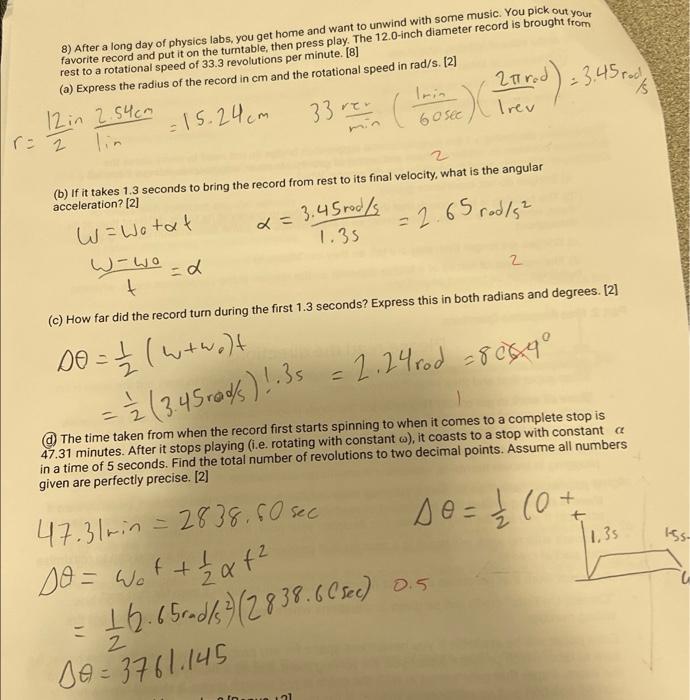 8) After a long day of physics labs, you get home and want to unwind with some music. You pick out your
favorite record and put it on the turntable, then press play. The 12.0-inch diameter record is brought from
rest to a rotational speed of 33.3 revolutions per minute. [8]
(a) Express the radius of the record in cm and the rotational speed in rad/s. [2]
r = 12in/2 2.54cm/1in = 15.24cm 33 rev/min (1min/60sec)(2π rad/1rev) = 3.45 rad/s
2
(b) If it takes 1.3 seconds to bring the record from rest to its final velocity, what is the angular
acceleration? [2]
ω = ω₀ + αt α = 3.45rad/s / 1.3s = 2.65 rad/s²
ω - ω₀ / t = α
2
(c) How far did the record turn during the first 1.3 seconds? Express this in both radians and degrees. [2]
Δθ = 1/2 (ω + ω₀)t
= 1/2 (3.45rad/s) 1.3s = 2.24rad
1
(d) The time taken from when the record first starts spinning to when it comes to a complete stop is
47.31 minutes. After it stops playing (i.e. rotating with constant ω), it coasts to a stop with constant α
in a time of 5 seconds. Find the total number of revolutions to two decimal points. Assume all numbers
given are perfectly precise. [2]
47.31min = 2838.60 sec Δθ = 1/2 (0 +
1.3s
Δθ = ω₀t + 1/2 αt²
= 1/2 (2.65rad/s²)(2838.60sec) 0.5
Δθ = 3761.145